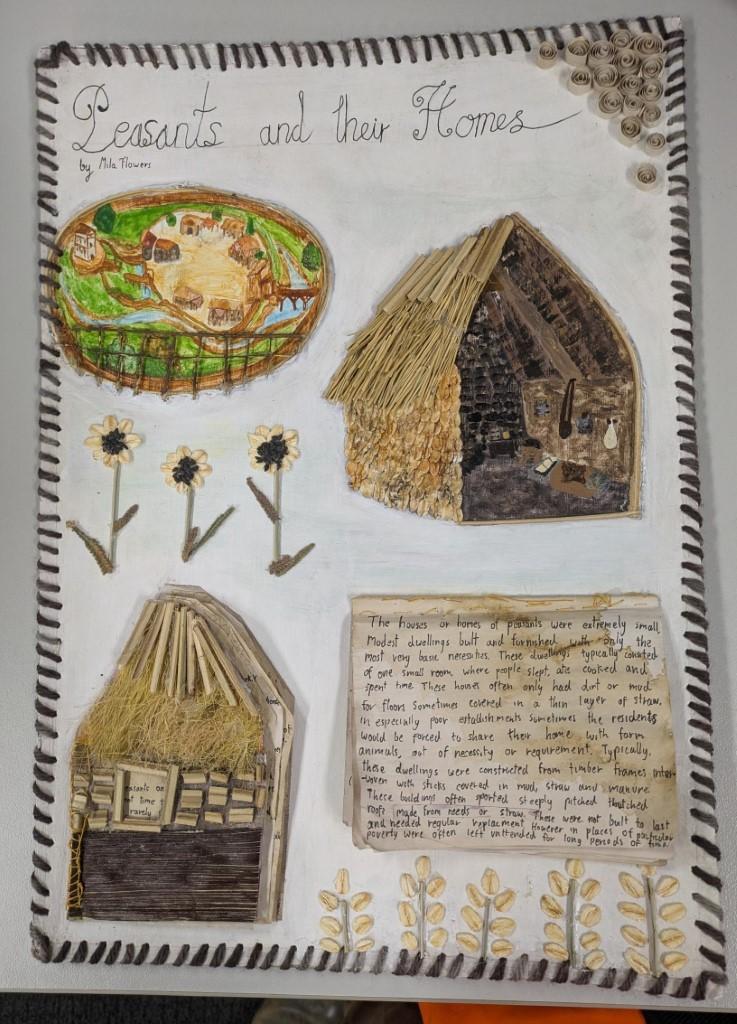 Peasants and their Homes
by Mila Flowers
The houses or homes of peasants were extremely small
Modest dwellings built and furnished with only the
most very basic necesities. These dwellings typically consisted
of one small room where people slept, ate cooked and
spent time. These homes often only had dirt or mud
for floors sometimes covered in a thin layer of straw.
in especially poor establishments sometimes the residents
would be forced to share their home with farm
animals, out of necessity or requirement. Typically,
these dwellings were constructed from timber frames inter-
-woven with sticks covered in mud, straw and manure
These buildings often sported steeply pitched thatched
roofs made from reeds or straw. These were not built to last
and needed regular replacment. However in places of particular
poverty were often left unttended for long periods of time.
easants
time
rarely